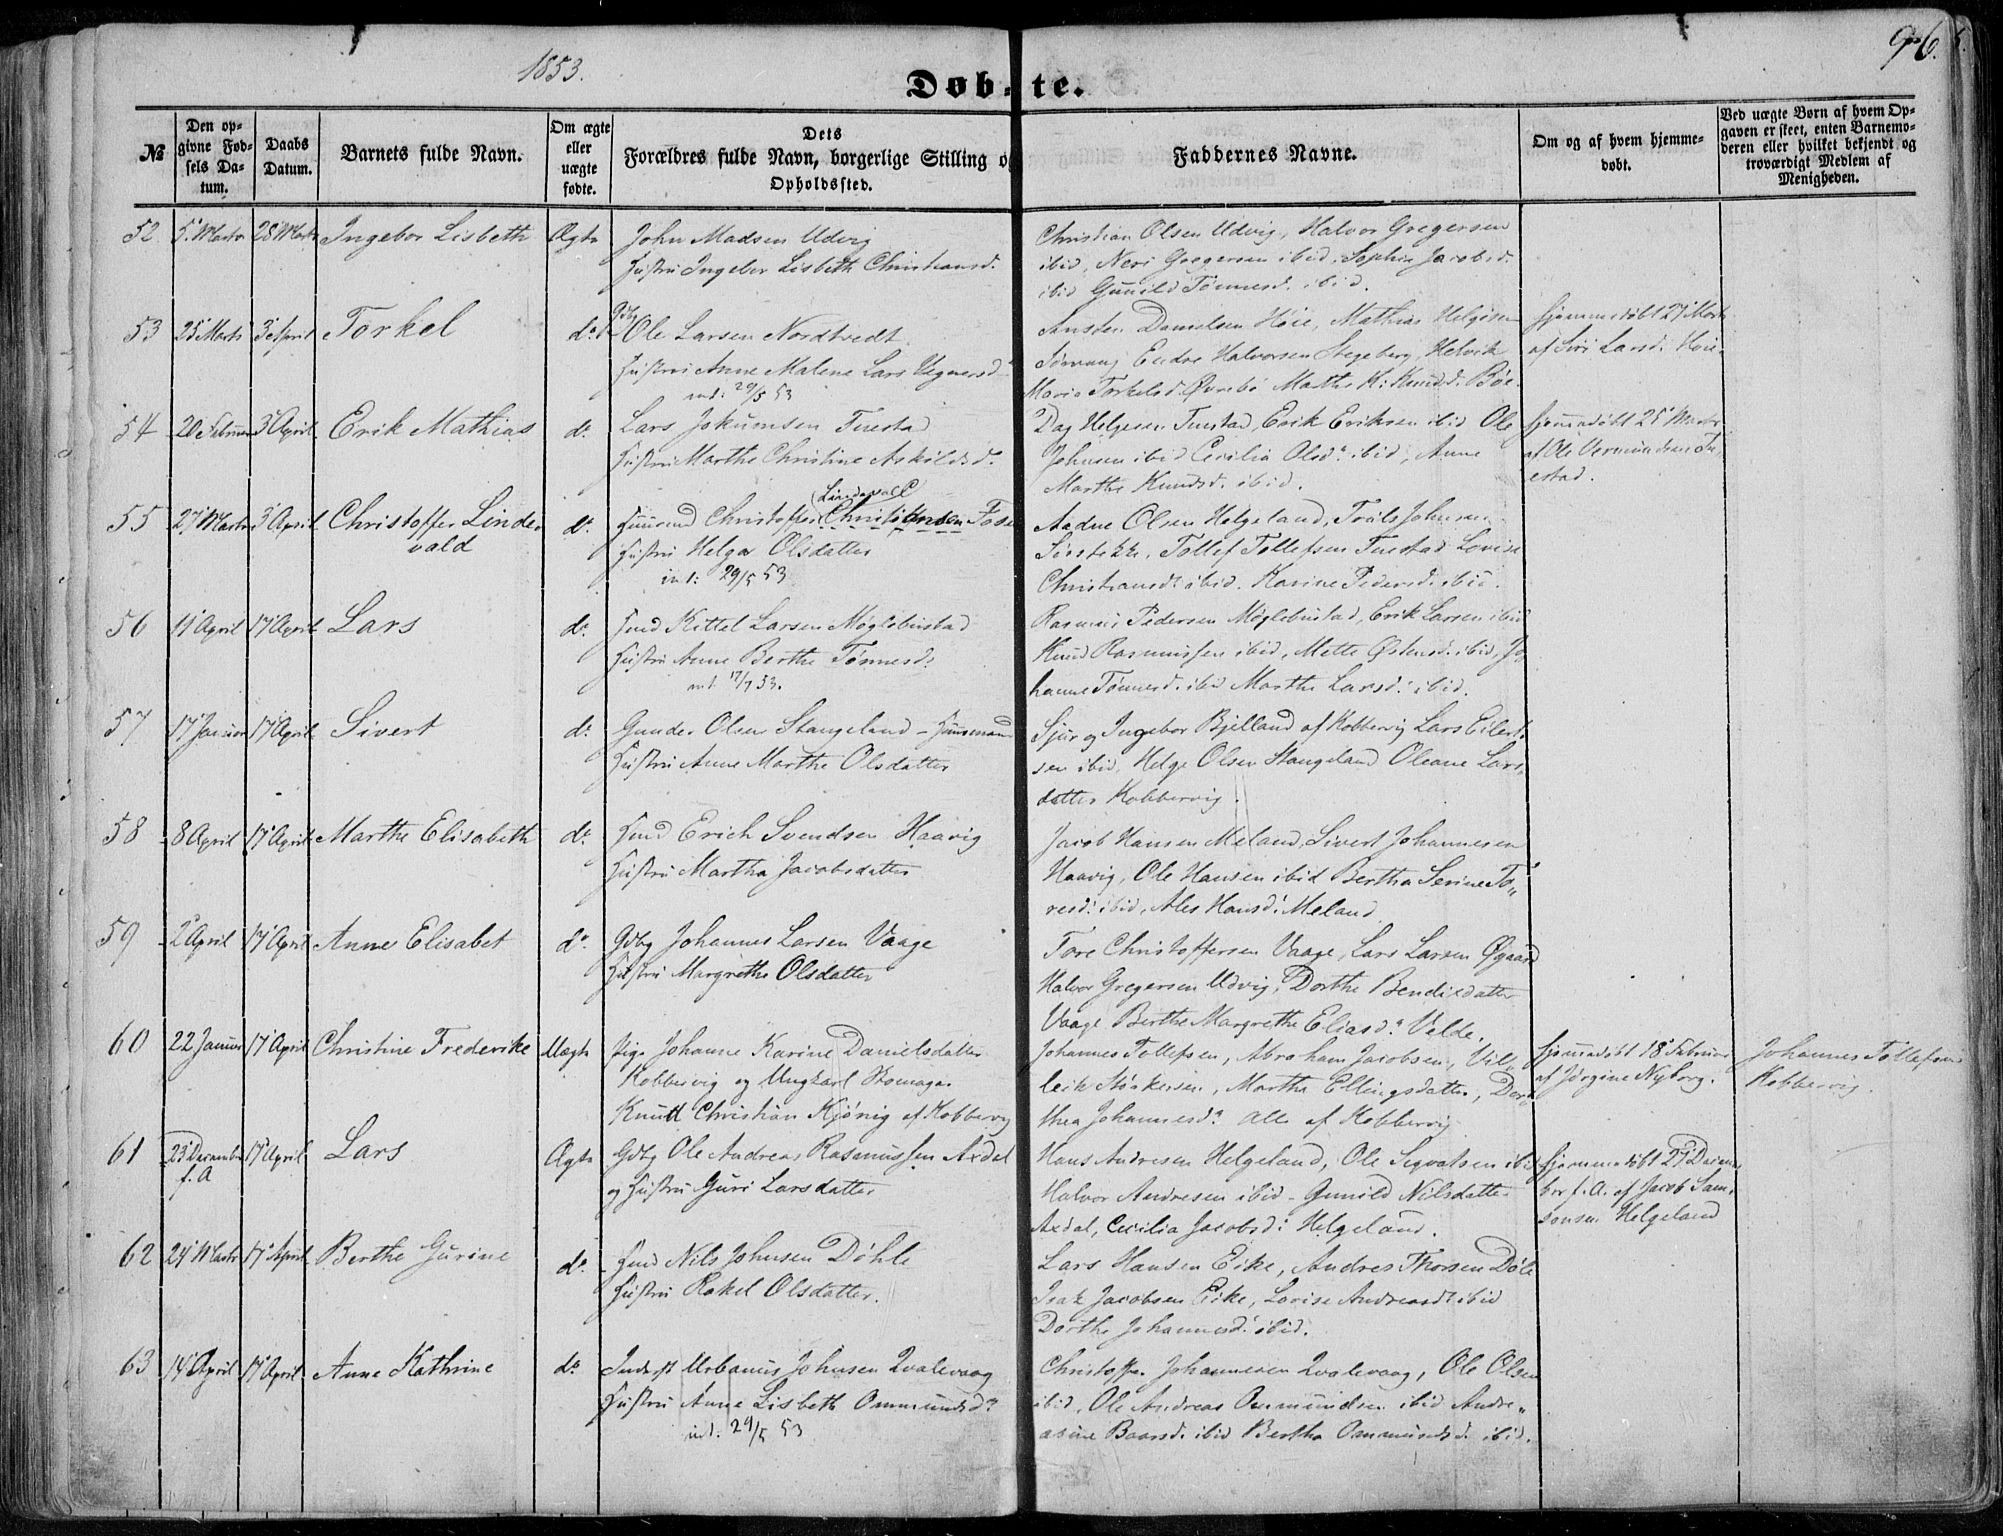 1853.
96.
Døb-te.
№
Den opgivne Fødsels Datum.
Daabs Datum.
Barnets fulde Navn.
Om ægte eller uægte fødte.
Dets Forældres fulde Navn, borgerlige Stilling og Opholdssted.
Faddernes Navne.
Om og af hvem hjemmedøbt.
Ved uægte Børn af hvem Opgaven er skeet, enten Barnemoderen eller hvilket bekjendt og troværdigt Medlem af Menigheden.
52 5 Marts 28 Marts Ingebor Lisbeth Ægte John Madsen Udvig
Hustru Ingebor Lisbeth Christiansd.
Christian Olsen Udvig, Halvor Gregersen
ibid, Neri Gregersen ibid, Sophie Jacobsd.
ibid Gunild Tønnesd. ibid.
53 25 Marts 3 April Torkel do. Gdbg Ole Larsen Nordtvedt
Hustru Anne Malene Lars Vegnersd.
ind: 29/5 53
Amsten Danielsen Høie, Mathias Helgesen
Endre Halvorsen Stegeberg, Helvik
Maria Torkelsd. Øvrebø Marthe K. Knudsd. Bøe
Hjemmedøbt 27 Marts
af Siri Larsd. Høie.
54 20 Februar 3 April Erik Mathias do. Lars Jokumsen Tuestad
Hustru Marthe Christine Askildsd.
Dag Helgesen Tuestad, Erik Eriksen ibid Ole
Johnsen ibid Cecilia Olsd. ibid, Anne
Marthe Knudsd. ibid.
Hjemmedøbt 25 Marts
af Ole Vermundsen Tu-
estad.
55 27 Marts 3 April Christoffer Linde-
vald
do. Huusmd Christoffer Christensen Fosen
(Lindevall
Hustru Helga Olsdatter
ind: 29/5 53
Aadne Olsen Helgeland, Troils Johnsen
Tollef Tollefsen Tuestad Lovise
Christiansd. ibid. Karine Pedersd. ibid.
56 11 April 17 April Lars do. Hmd Kittel Larsen Møglebustad
Hustru Anne Berthe Tønnesd.
ind. 17/7 53.
Rasmus Pedersen Møglebustad, Erik Larsen ibid
Knud Rasmussen ibid, Mette Østensd. ibid, Jo-
hanne Tønnesd. ibid Marthe Larsd. ibid.
57 17 Januar 17 April Sivert do. Gunder Olsen Stangeland - Huusmand
Hustru Anne Marthe Olsdatter
Sjur og Ingebor Bjelland af Kobbervig Lars Eilert-
sen ibid, Helge Olsen Stangeland Oleane Lars-
datter Kobbervig.
58 8 April 17 April Marthe Elisabeth do. Hmd Erich Svendsen Haavig
Hustru Martha Jacobsdatter
Jacob Hansen Meland, Sivert Johannesen
Haavig, Ole Hansen ibid Bertha Serine To-
resd. ibid, Ales Hansd. Meland
59 2 April 17 April Anne Elisabet do. Gdbg Johannes Larsen Vaage
Hustru Margrethe Olsdatter
Tore Christoffersen Vaage, Lars Larsen Øgaard
Halvor Gregersen Udvig, Dorthe Bendixdatter
Vaage Berthe Margrethe Eliasd. Velde.
60 22 Januar 17 April Christine Frederike Uægte Pige Johanne Karine Danielsdatter
Kobbervig og Ungkarl Skomager
Knutt Christian Kjönig af Kobbervig
Johannes Tollefsen, Abraham Jacobsen, Vil-
leik Størkersen, Martha Ellingsdatter, Dor-
thea Johannesd. alle af Kobbervig
Hjemmedøbt 18 Februar
af Jørgine Nyborg.
Johannes Tollefsen
Kobbervig
61 23 December
f. A
17 April Lars Ægte Gdbg Ole Andreas Rasmussen Axdal
og Hustru Guri Larsdatter
Hans Andresen Helgeland, Ole Sigvatsen ibid
Halvor Andresen ibid - Gunild Nilsdatter
Axdal, Cecilia Jacobsd. Helgeland.
Hjemmedøbt 27 Decem-
ber f.A. af Jacob Sam-
sonsen Helgeland
62 24 Marts 17 April Berthe Gurine do. Hmd Nils Johnsen Døhle
Hustru Rakel Olsdatter.
Lars Hansen Eike, Andres Thorsen Døle
Isak Jacobsen Eike, Lovise Andreasd. ibid
Dorthe Johannesd. ibid.
63 14 April 17 April Anne Kathrine do. Inderst Urbanus Johnsen Qvalevaag
Hustru Anne Lisbeth Ommundsd.
ind. 29/5 53
Christoffer Johannesen Qvalevaag, Ole Olsen
ibid, Ole Andreas Ommundsen ibid Andre-
asine Baarsd. ibid Bertha Ommundsd. ibid.